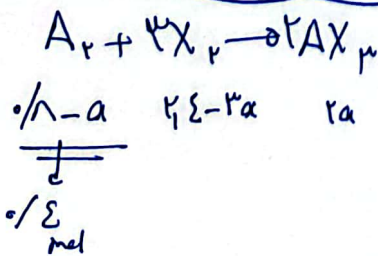 A₂ + ۳X₂ → ۲AX₃
۰/۸-a ۲,٤-۳a ۲a
۰/٤
mol